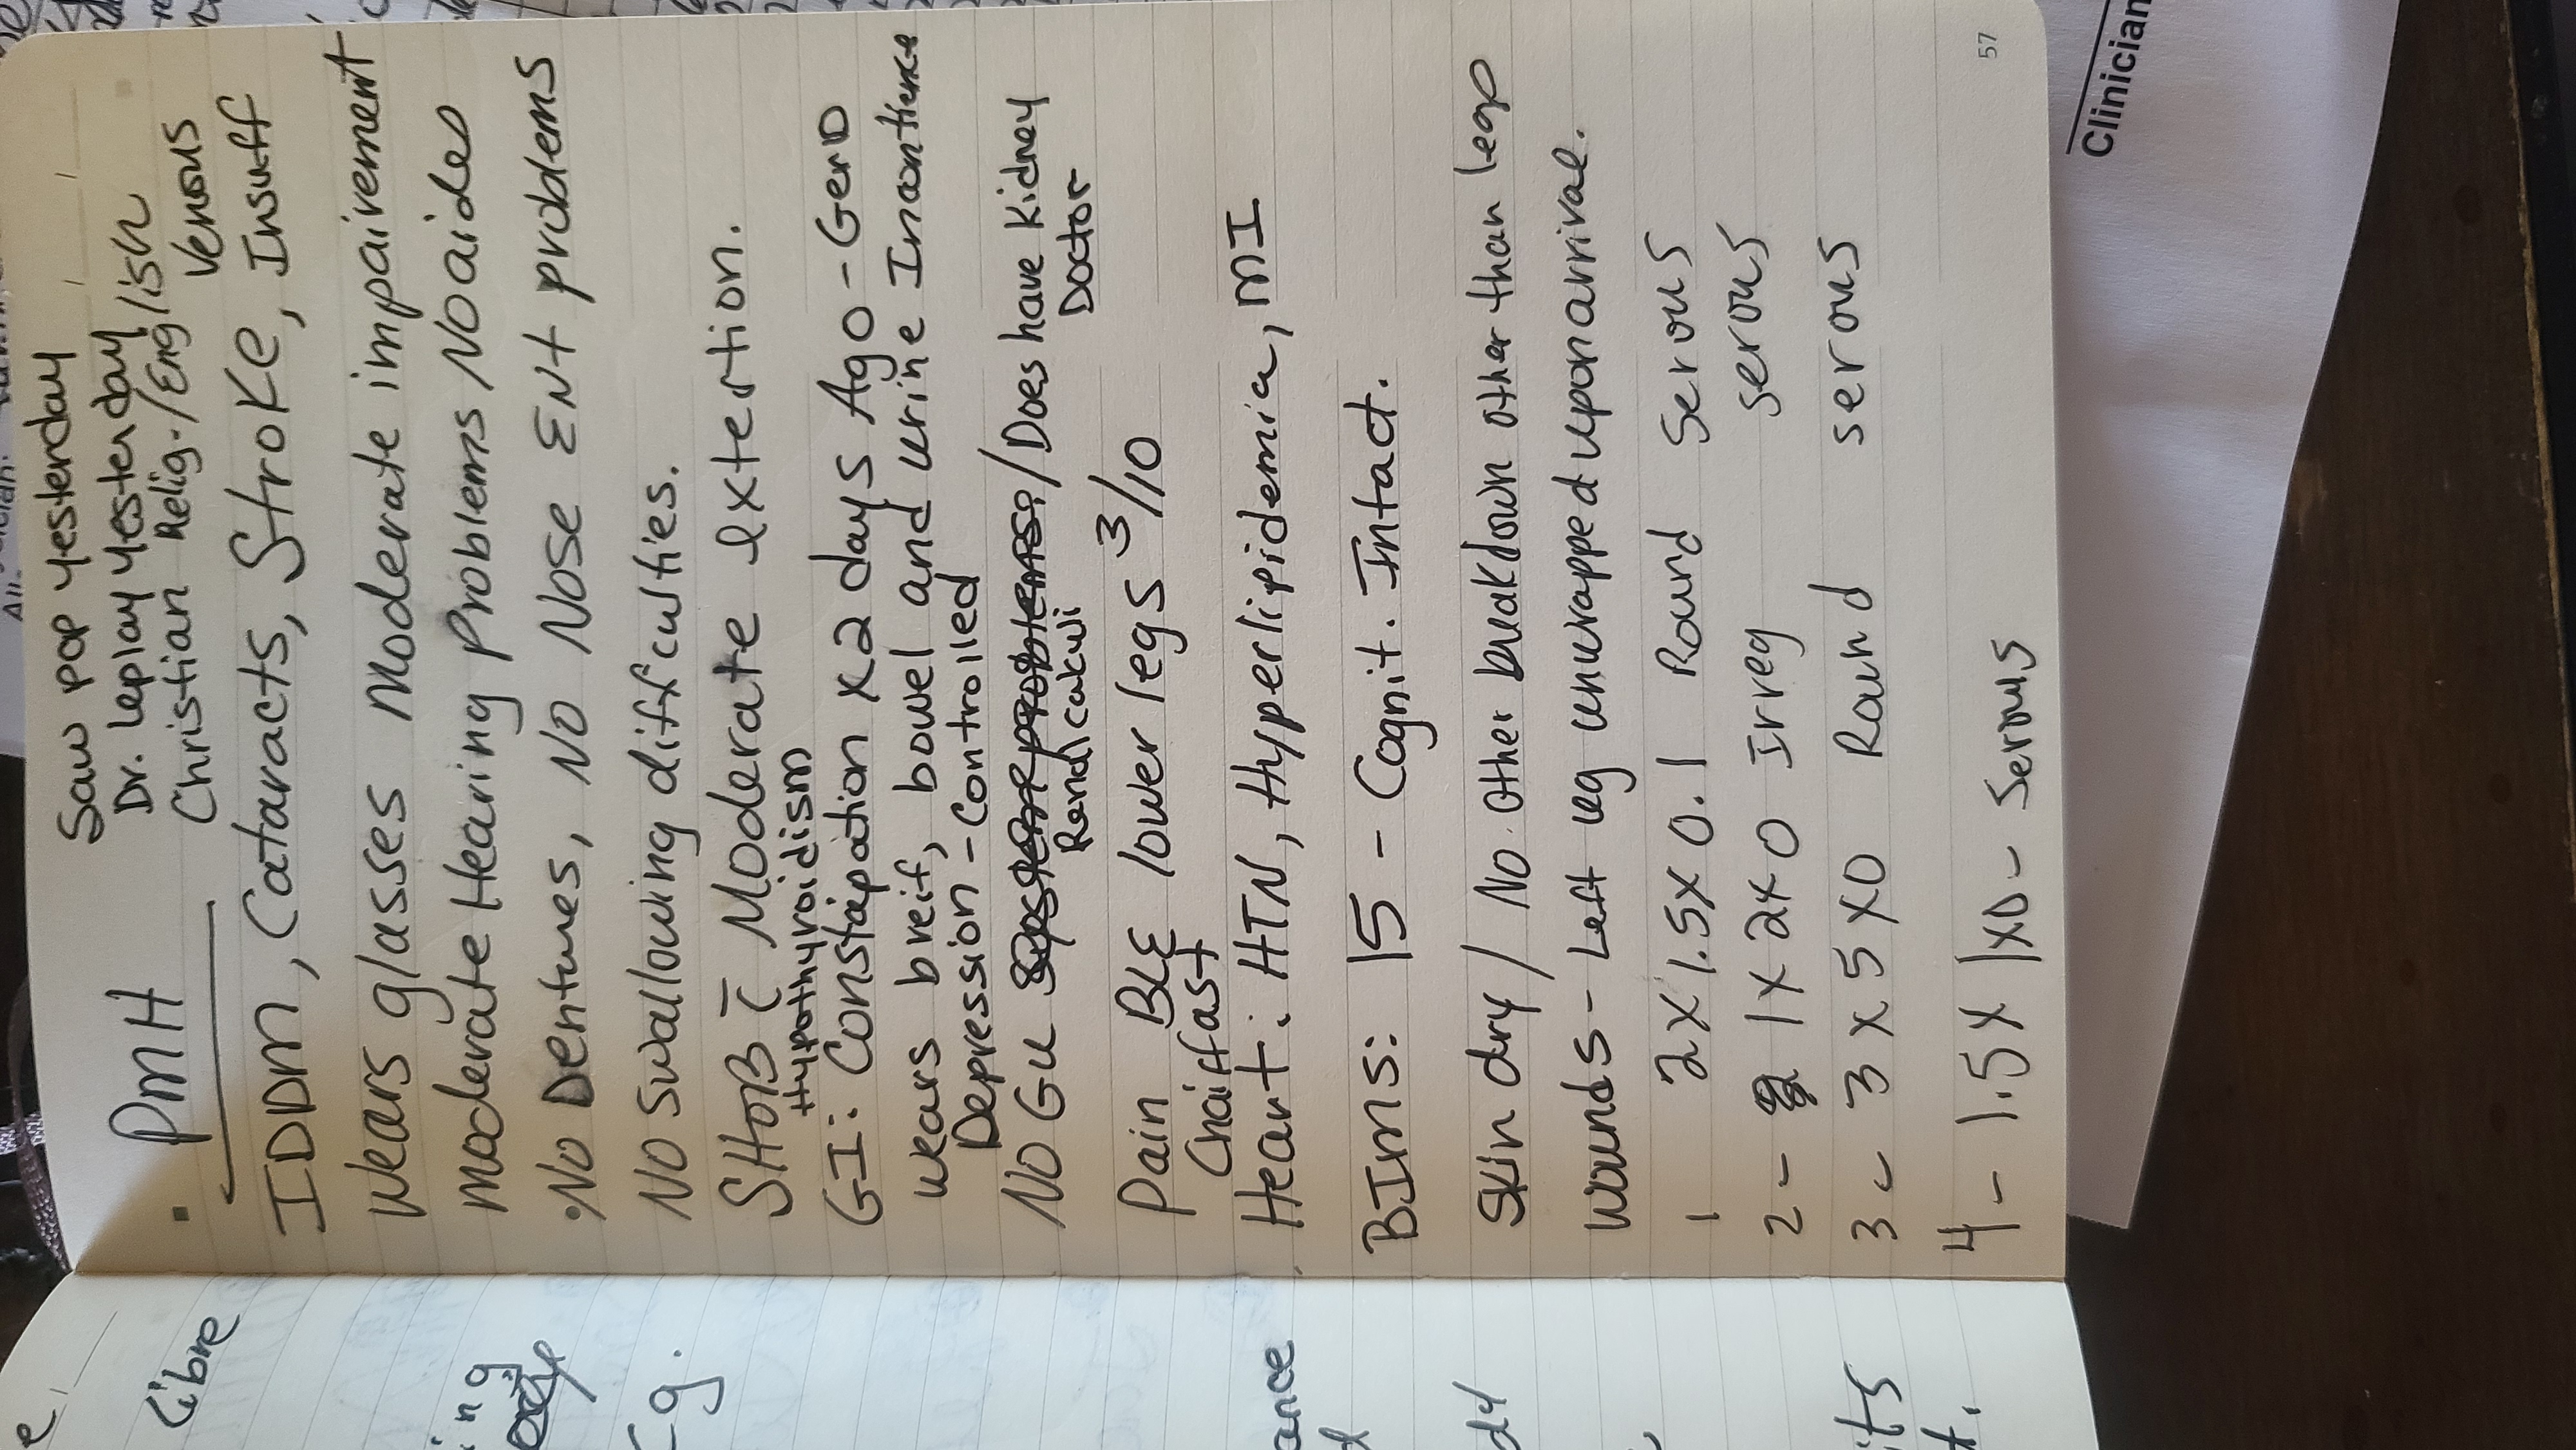 e,
Libre
ing
Eg.
ance
d
its
t.
Saw pop yesterday
Dr. Leplay yesterday
Christian Relig./English
PMH
Venous
IDDM, Cataracts, Stroke, Insuff
Wears glasses Moderate impairement
moderate Hearing Problems No aides
•No Dentures, No Nose ENt problems
No swallowing diffculties.
SHOB c̄ Moderate extertion.
Hypothyroidism
GI: Constapation x2 days Ago - GerD
wears breif, bowel and urine Incontience
Depression - Controlled
No GU System problems. / Does have Kidney
Renal calculi Doctor
Pain BLE lower legs 3/10
Chairfast
Heart: HTN, Hyperlipidemia, MI
BIMS: 15 - Cognit. Intact.
Skin dry / No other breakdown other than legs
wounds - Left leg unwrapped upon arrival.
1 2x1.5x0.1 Round Serous
2 - 1x2x0 Irreg serous
3 - 3x5x0 Round serous
4 - 1.5x1x0 - Serous
57
Clinician